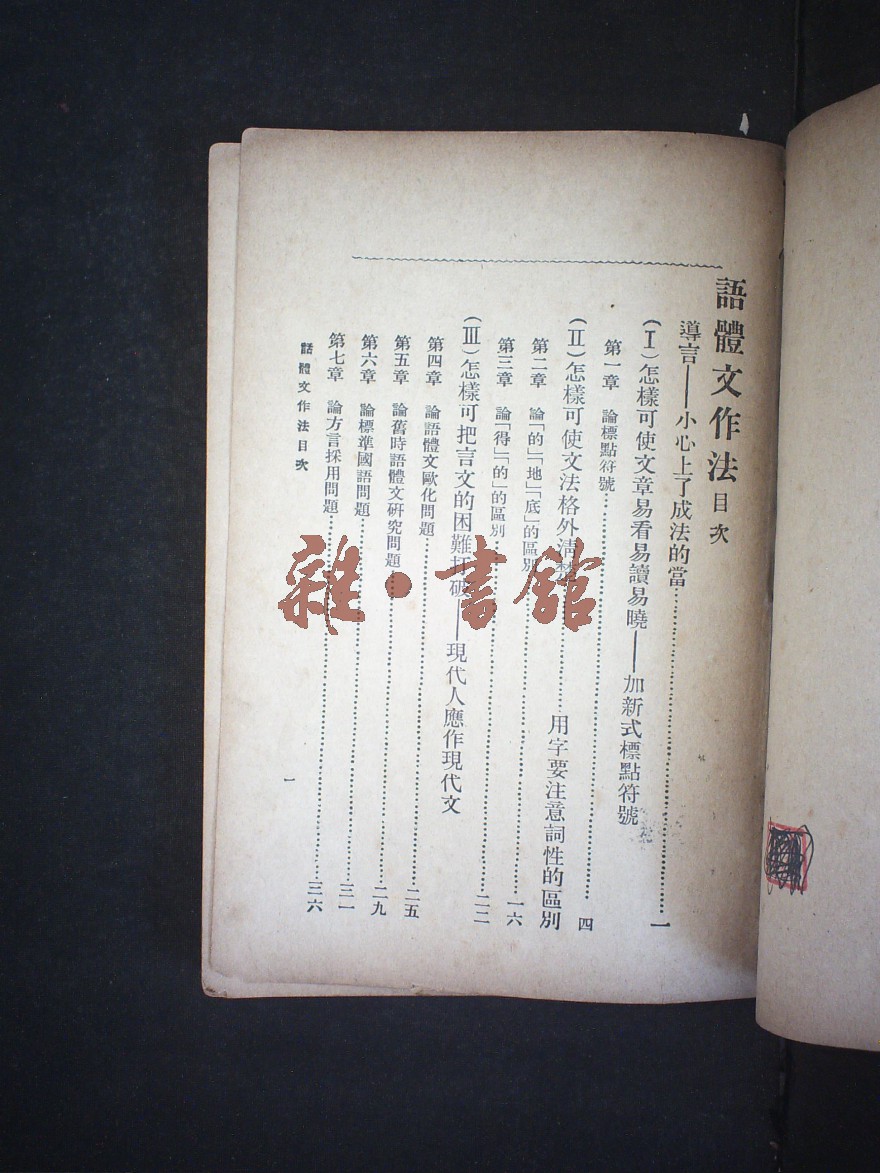 語體文作法目次
導言——小心上了成法的當……一
(Ⅰ)怎樣可使文章易看易讀易曉——加新式標點符號
第一章　論標點符號……四
(Ⅱ)怎樣可使文法格外清楚……用字要注意詞性的區別
第二章　論「的」「地」「底」的區別……一六
第三章　論「得」「的」的區別……二二
(Ⅲ)怎樣可把言文的困難打破——現代人應作現代文
第四章　論語體文歐化問題……二五
第五章　論舊時語體文研究問題……二九
第六章　論標準國語問題……三一
第七章　論方言採用問題……三六
語體文作法目次
一
雜·書館